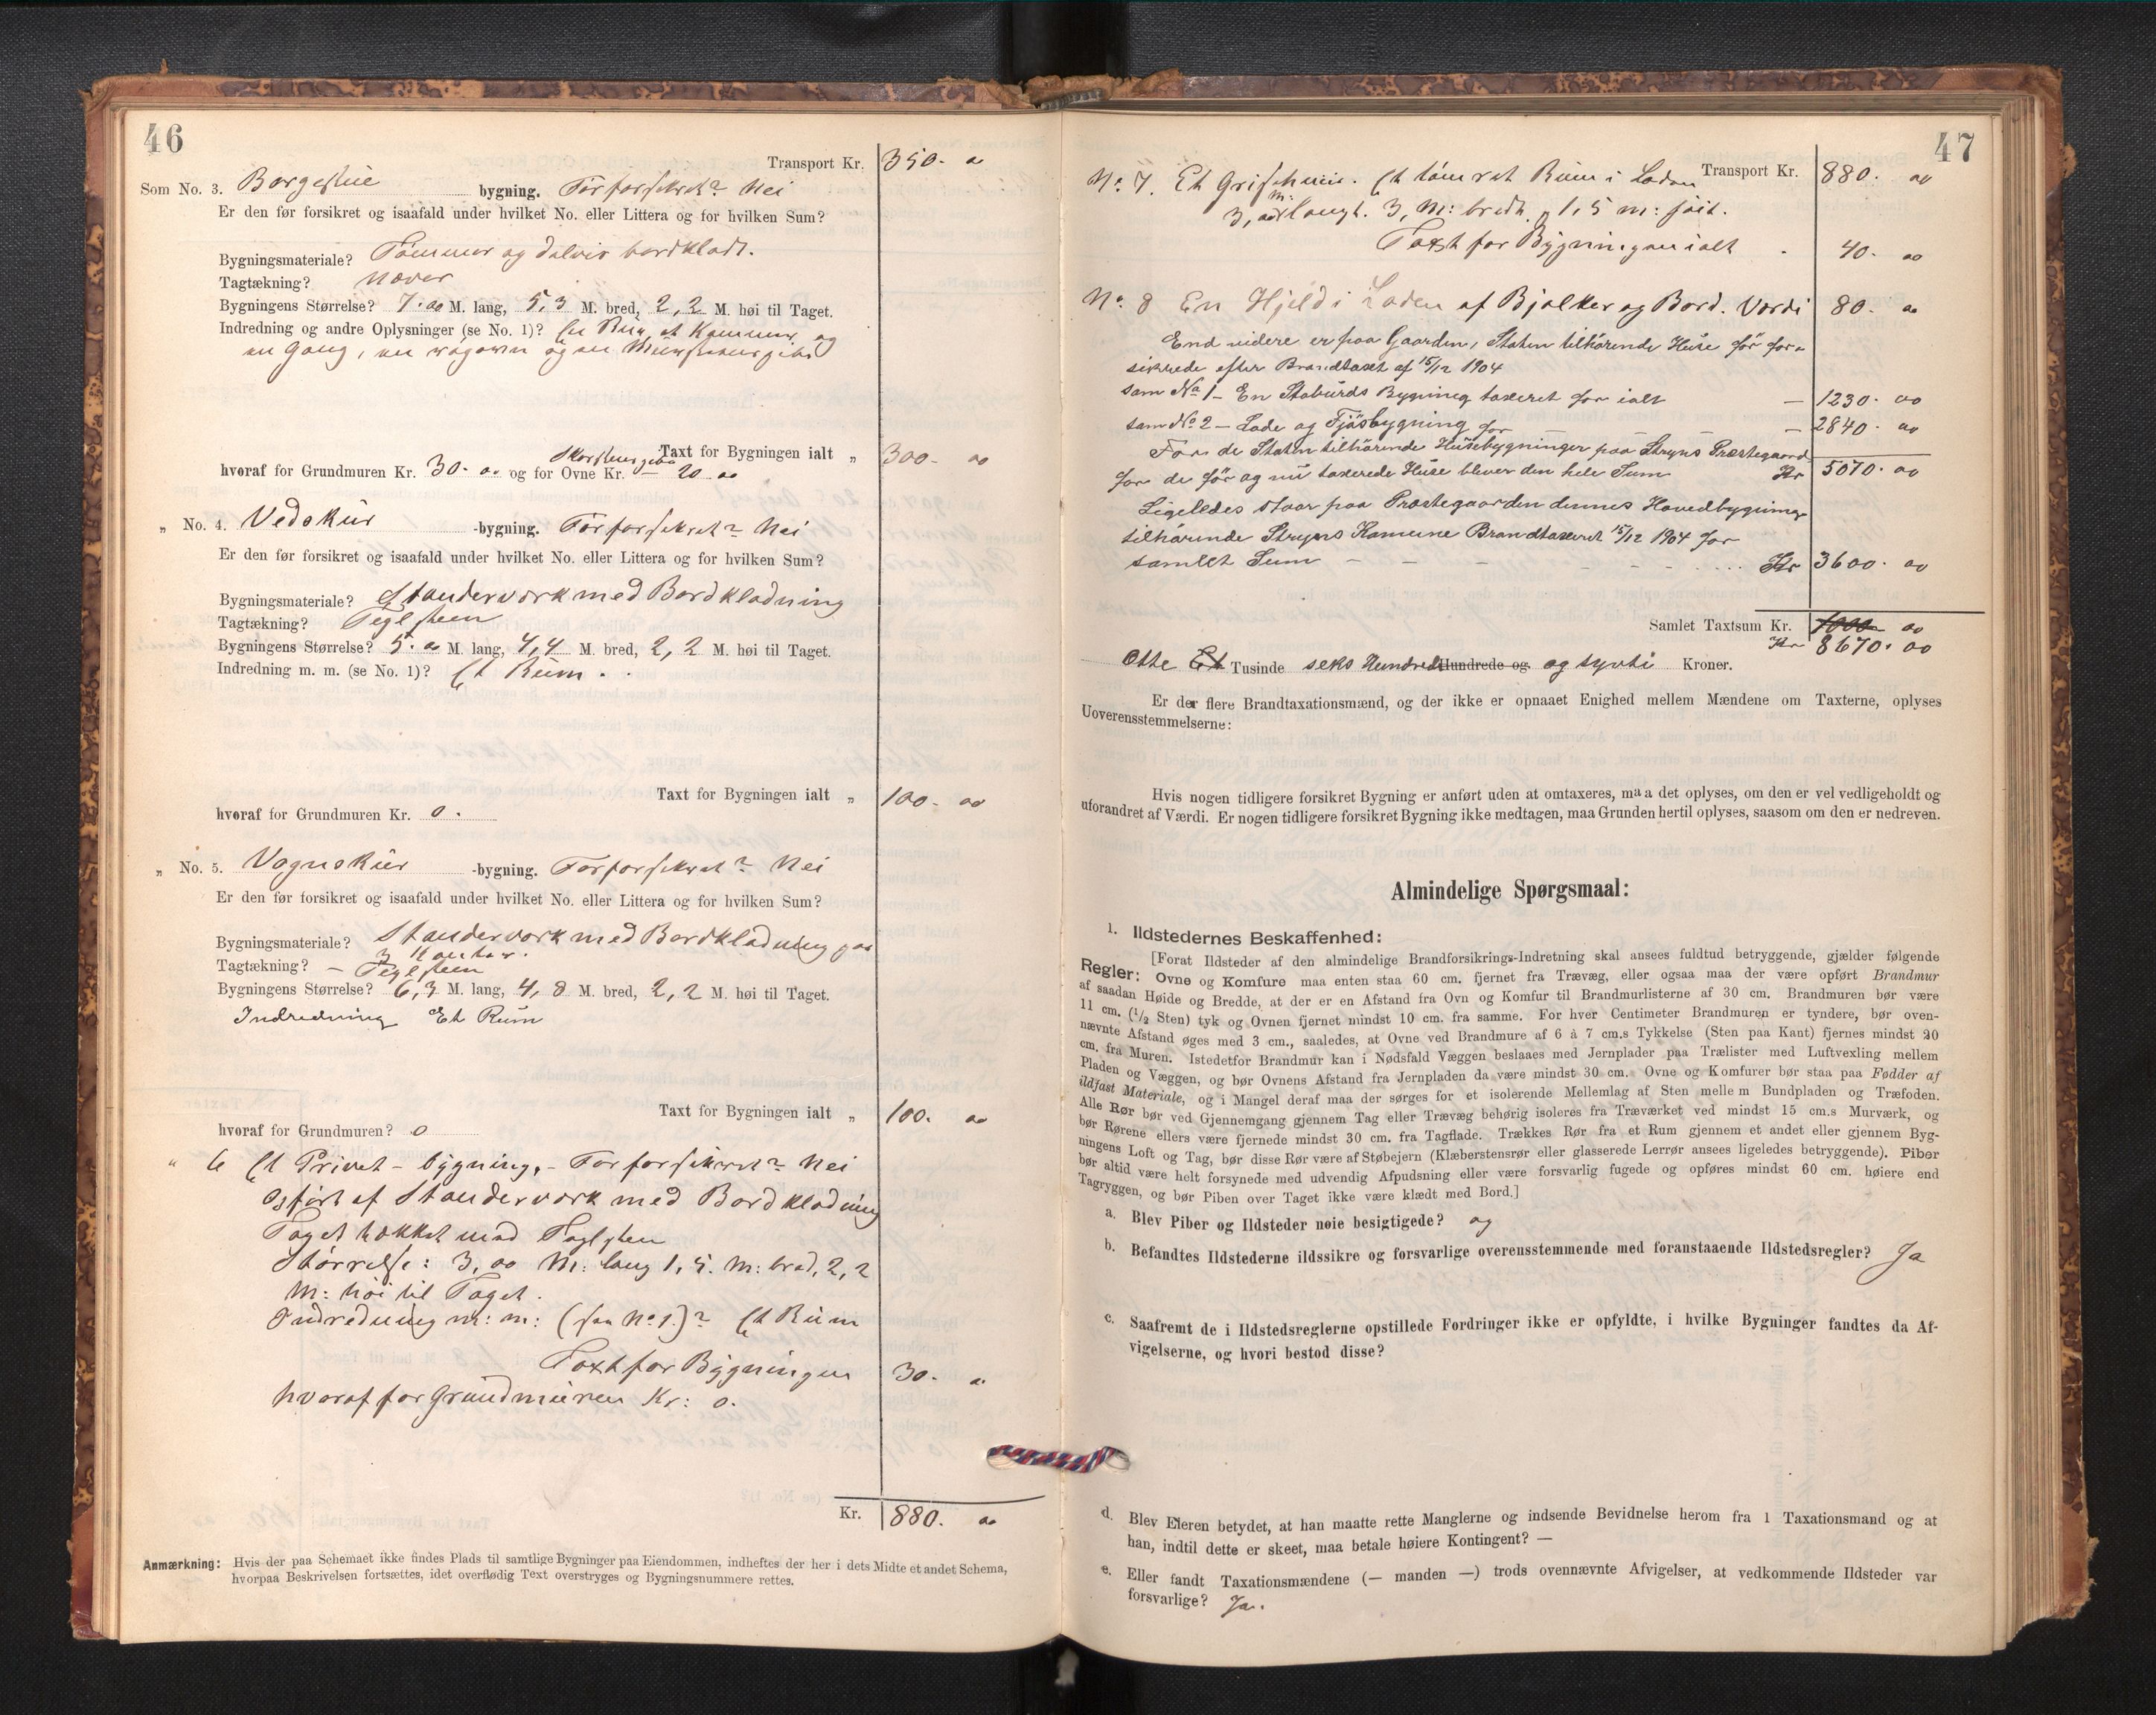 46
Transport Kr. 350. 00
Som No. 3. Borgestue bygning. Før forsikret? Nei
Er den før forsikret og isaafald under hvilket No. eller Littera og for hvilken Sum?
Bygningsmateriale? Tømmer og delvis bordklædt.
Tagtækning? Næver
Bygningens Størrelse? 7.00 M. lang, 5,3 M. bred, 2,2 M. høi til Taget.
Indredning og andre Oplysninger (se No. 1)? En Stue, et Kammer, og
en Gang, en og en
Skorstenspibe Taxt for Bygningen ialt „ 300. 00
hvoraf for Grundmuren Kr. 30. 00 og for Ovne Kr. — 20 00
„ No. 4. Vedskur -bygning. Før forsikret? Nei
Er den før forsikret og isaafald under hvilket No. eller Littera og for hvilken Sum?
Bygningsmateriale? Standerværk med Bordklædning
Tagtækning? Teglsteen
Bygningens Størrelse? 5.00 M. lang, 4,4 M. bred, 2,2 M. høi til Taget.
Indredning m. m. (se No. 1)? Et Rum.
Taxt for Bygningen ialt „ 100. 00
hvoraf for Grundmuren Kr. 0.
„ No. 5. Vognskur -bygning. Før forsikret? Nei
Er den før forsikret og isaafald under hvilket No. eller Littera og for hvilken Sum?
Bygningsmateriale? Standerværk med Bordklædning paa
3 Kanter.
Tagtækning? — Teglsteen
Bygningens Størrelse? 6,3 M. lang, 4,8 M. bred, 2,2 M. høi til Taget.
Indredning Et Rum
Taxt for Bygningen ialt „ 100. 00
hvoraf for Grundmuren? 0
„ 6 Et Privet - bygning, - Før forsikret? Nei
Opført af Standerværk med Bordklædning
Taget tækket med Teglsten
Størrelse: 3,00 M: lang 1,5. m: bred, 2,2
M: høi til Taget.
Indredning m: m: (se No 1.)? Et Rum
Taxt for Bygningen 30. 00
hvoraf for Grundmuren Kr: 0.
Kr. 880. 00
Anmærkning: Hvis der paa Schemaet ikke findes Plads til samtlige Bygninger paa Eiendommen, indheftes der her i dets Midte et andet Schema,
hvorpaa Beskrivelsen fortsættes, idet overflødig Text overstryges og Bygningsnummere rettes.
47
Transport Kr. 880. 00
No. 7. Et Grisehuus. Et tømret Rum i Laden
3,00 m: langt. 3, M: bredt, 1,5 m: høit.
Taxt for Bygningen ialt - 40. 00
No. 8 En Hjeld i Laden af Bjælker og Bord. Værdi 80. 00
End videre er paa Gaarden, Staten tilhørende Huse før for-
sikrede efter Brandtaxt af 15/12 1904
som No 1 - En Staburds Bygning taxeret for ialt — 1230. 00
som No 2 - Lade og Fjøsbygning for — 2840. 00
For de Staten tilhørende Husebygninger paa Stryns Præstegaard
for de før og nu taxerede Huse bliver den hele Sum Kr 5070. 00
Ligeledes staar paa Præstegaarden dennes Hovedbygning
tilhørende Stryns Komune Brandtaxeret 15/12 1904 for
samlet Sum - - - - - - Kr 3600. 00
Samlet Taxtsum Kr. 1000 00
Kr 8670. 00
Otte Et Tusinde seks Hundred Hundrede og og sytti Kroner.
Er der flere Brandtaxationsmænd, og der ikke er opnaaet Enighed mellem Mændene om Taxterne, oplyses
Uoverensstemmelserne:
Hvis nogen tidligere forsikret Bygning er anført uden at omtaxeres, maa det oplyses, om den er vel vedligeholdt og
uforandret af Værdi. Er nogen tidligere forsikret Bygning ikke medtagen, maa Grunden hertil oplyses, saasom om den er nedreven.
Almindelige Spørgsmaal:
1. Ildstedernes Beskaffenhed:
[Forat Ildsteder af den almindelige Brandforsikrings-Indretning skal ansees fuldtud betryggende, gjælder følgende
Regler: Ovne og Komfure maa enten staa 60 cm. fjernet fra Trævæg, eller ogsaa maa der være opført Brandmur
af saadan Høide og Bredde, at der er en Afstand fra Ovn og Komfur til Brandmurlisterne af 30 cm. Brandmuren bør være
11 cm. (1/2 Sten) tyk og Ovnen fjernet mindst 10 cm. fra samme. For hver Centimeter Brandmuren er tyndere, bør oven-
nævnte Afstand øges med 3 cm., saaledes, at Ovne ved Brandmure af 6 à 7 cm.s Tykkelse (Sten paa Kant) fjernes mindst 20
cm. fra Muren. Istedetfor Brandmur kan i Nødsfald Væggen beslaaes med Jernplader paa Trælister med Luftvexling mellem
Pladen og Væggen, og bør Ovnens Afstand fra Jernpladen da være mindst 30 cm. Ovne og Komfurer bør staa paa Fødder af
ildfast Materiale, og i Mangel deraf maa der sørges for et isolerende Mellemlag af Sten mellem Bundpladen og Træfoden.
Alle Rør bør ved Gjennemgang gjennem Tag eller Trævæg behørig isoleres fra Træværket ved mindst 15 cm.s Murværk, og
bør Rørene ellers være fjernede mindst 30 cm. fra Tagflade. Trækkes Rør fra et Rum gjennem et andet eller gjennem Byg-
ningens Loft og Tag, bør disse Rør være af Støbejern (Klæberstensrør eller glasserede Lerrør ansees ligeledes betryggende). Piber
bør altid være helt forsynede med udvendig Afpudsning eller være forsvarlig fugede og opføres mindst 60 cm. høiere end
Tagryggen, og bør Piben over Taget ikke være klædt med Bord.]
a. Blev Piber og Ildsteder nøie besigtigede? og
b. Befandtes Ildstederne ildssikre og forsvarlige overensstemmende med foranstaaende Ildstedsregler? Ja
c. Saafremt de i Ildstedsreglerne opstillede Fordringer ikke er opfyldte, i hvilke Bygninger fandtes da Af-
vigelserne, og hvori bestod disse?
d. Blev Eieren betydet, at han maatte rette Manglerne og indsende Bevidnelse herom fra 1 Taxationsmand og at
han, indtil dette er skeet, maa betale høiere Kontingent? —
e. Eller fandt Taxationsmændene (— manden —) trods ovennævnte Afvigelser, at vedkommende Ildsteder var
forsvarlige? Ja.